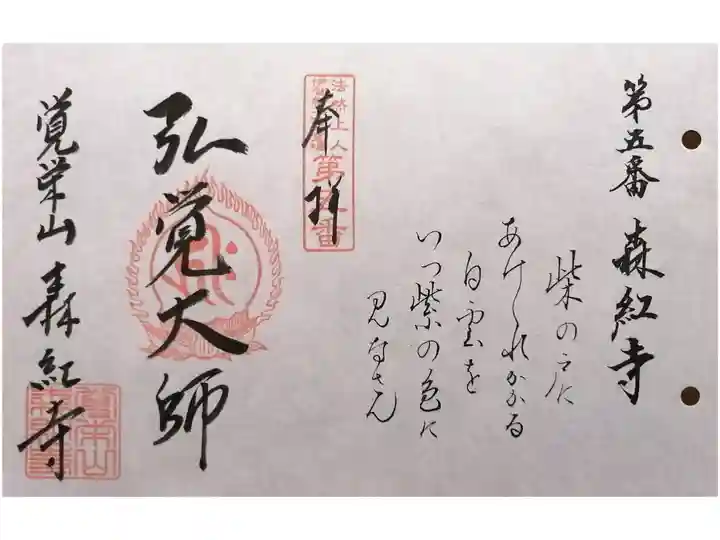 第五番 森紅寺
柴の戸に
あけくれかかる
白雲を
いつ紫の色に
見なさん
奉拝
法然上人
第五番
弘覚大師
覚栄山 森紅寺